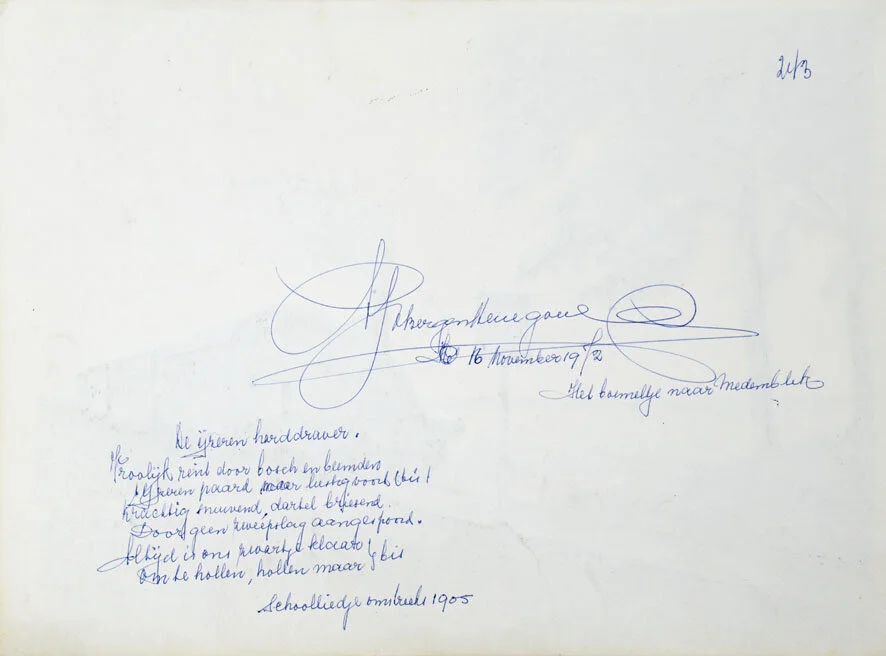 24/3
16 November 1972
Het boemeltje naar Medemblik
De ijzeren harddraver.
Vroolijk rent door bosch en beemden
IJzeren paard maar lustig voort (bis)
Krachtig snuivend, dartel briesend.
Door geen zweepslag aangespoord.
Altijd is ons zwartje klaar
Om te hollen, hollen maar } bis
Schoolliedje omstreeks 1905